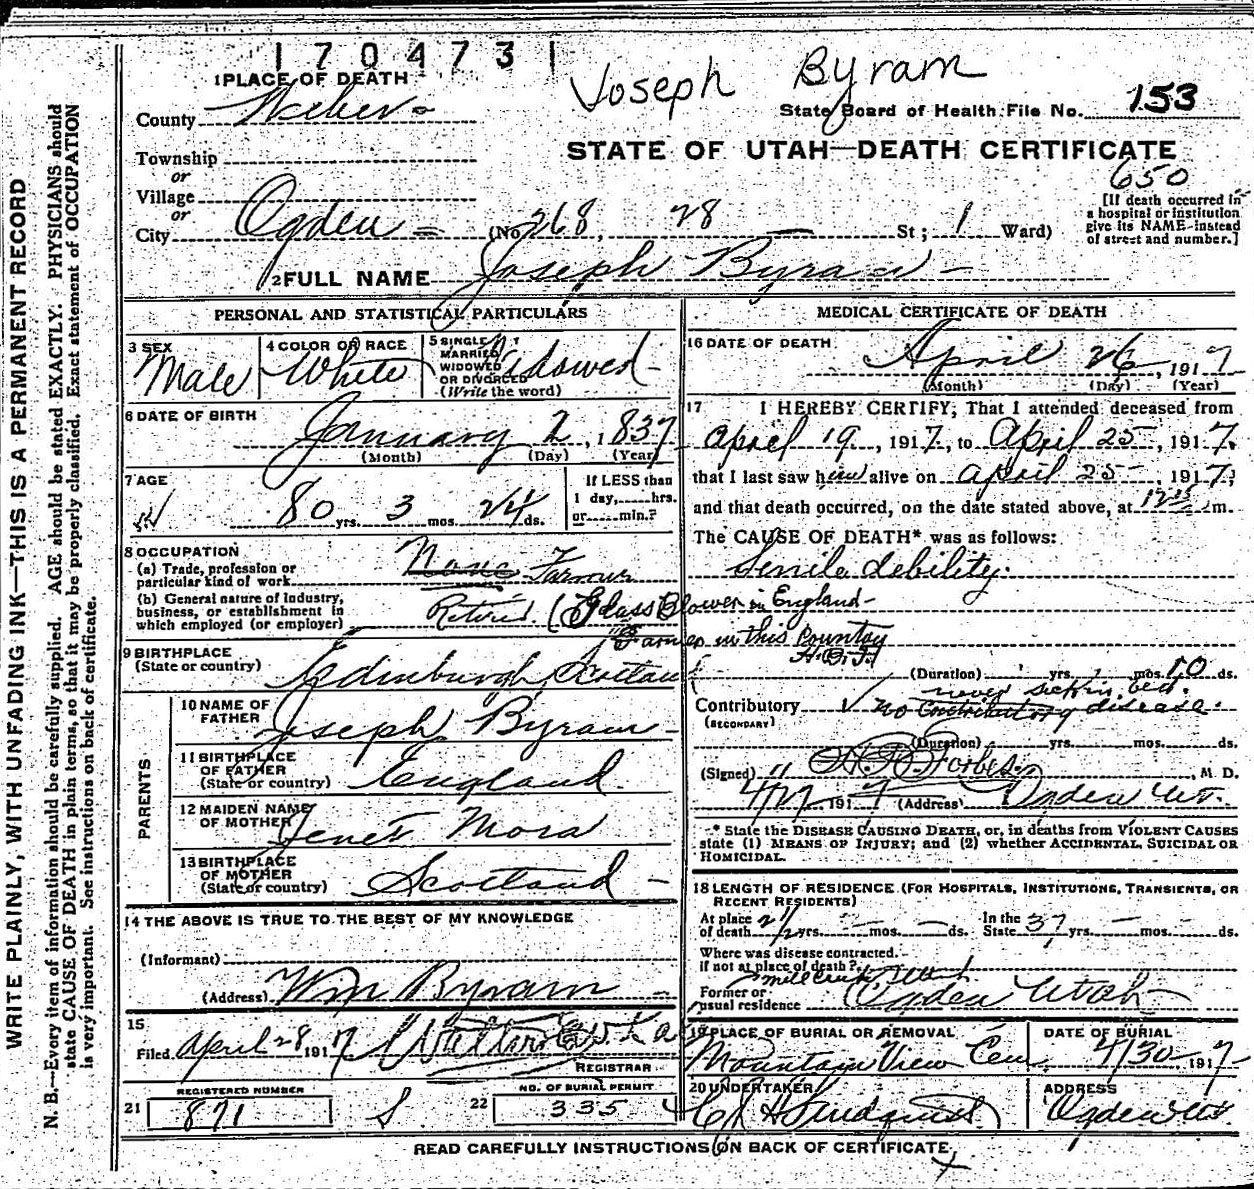 1 7 0 4 7 3 1
Joseph Byram
1 PLACE OF DEATH
County Weber
State Board of Health File No. 153
STATE OF UTAH—DEATH CERTIFICATE
650
Township
or
Village
or
City Ogden (No. 268, 28 St; 1 Ward)
[If death occurred in a hospital or institution give its NAME instead of street and number.]
2 FULL NAME Joseph Byram
PERSONAL AND STATISTICAL PARTICULARS
3 SEX Male
4 COLOR OR RACE White
5 SINGLE MARRIED WIDOWED OR DIVORCED (Write the word) Widowed
6 DATE OF BIRTH January 2, 1837
(Month) (Day) (Year)
7 AGE 80 yrs. 3 mos. 24 ds.
If LESS than 1 day, hrs. or min.?
8 OCCUPATION
(a) Trade, profession or particular kind of work None Farmer
(b) General nature of industry, business, or establishment in which employed (or employer) Retired (Glass Blower in England
Farmer in this Country
9 BIRTHPLACE (State or country) Edinburgh, Scotland
PARENTS
10 NAME OF FATHER Joseph Byram
11 BIRTHPLACE OF FATHER (State or country) England
12 MAIDEN NAME OF MOTHER Jenet
13 BIRTHPLACE OF MOTHER (State or country) Scotland
14 THE ABOVE IS TRUE TO THE BEST OF MY KNOWLEDGE
(Informant)
(Address) Wm Byram
15
Filed April 28 1917
REGISTRAR
REGISTERED NUMBER
21 871
NO. OF BURIAL PERMIT
22 335
MEDICAL CERTIFICATE OF DEATH
16 DATE OF DEATH April 26, 1917
(Month) (Day) (Year)
17 I HEREBY CERTIFY, That I attended deceased from
April 19, 1917, to April 25, 1917,
that I last saw him alive on April 25, 1917,
and that death occurred, on the date stated above, at 12 15 m.
The CAUSE OF DEATH* was as follows:
Senile debility.
(Duration) yrs. mos. 10 ds.
never sick in bed.
Contributory (SECONDARY) no Contributory disease.
(Duration) yrs. mos. ds.
(Signed) Forbes, M. D.
4/27 1917 (Address) Ogden Ut.
* State the DISEASE CAUSING DEATH, or, in deaths from VIOLENT CAUSES state (1) MEANS OF INJURY; and (2) whether ACCIDENTAL, SUICIDAL OR HOMICIDAL.
18 LENGTH OF RESIDENCE (FOR HOSPITALS, INSTITUTIONS, TRANSIENTS, OR RECENT RESIDENTS)
At place of death 2 1/2 yrs. — mos. — ds. In the State 37 yrs. — mos. ds.
Where was disease contracted. if not at place of death?
Former or usual residence Mill Creek Utah Ogden Utah
19 PLACE OF BURIAL OR REMOVAL Mountain View Cem.
DATE OF BURIAL 4/30 1917
20 UNDERTAKER
ADDRESS Ogden Ut.
READ CAREFULLY INSTRUCTIONS ON BACK OF CERTIFICATE
WRITE PLAINLY, WITH UNFADING INK—THIS IS A PERMANENT RECORD
N. B.—Every item of information should be carefully supplied. AGE should be stated EXACTLY. PHYSICIANS should
state CAUSE OF DEATH in plain terms, so that it may be properly classified. Exact statement of OCCUPATION
is very important. See instructions on back of certificate.